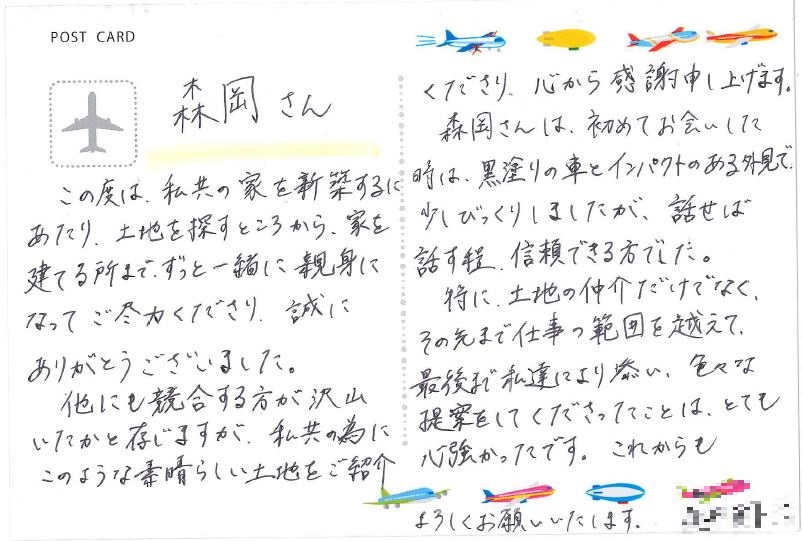 POST CARD
森岡さん
この度は、私共の家を新築するに
あたり、土地を探すところから、家を
建てる所まで、ずっと一緒に親身に
なってご尽力くださり、誠に
ありがとうございました。
他にも競合する方が沢山
いたかと存じますが、私共の為に
このような素晴らしい土地をご紹介
くださり、心から感謝申し上げます。
森岡さんは、初めてお会いした
時は、黒塗りの車とインパクトのある外見で、
少しびっくりしましたが、話せば
話す程、信頼できる方でした。
特に、土地の仲介だけでなく、
その先まで仕事の範囲を越えて、
最後まで私達により添い、色々な
提案をしてくださったことは、とても
心強かったです。これからも
よろしくお願いいたします。